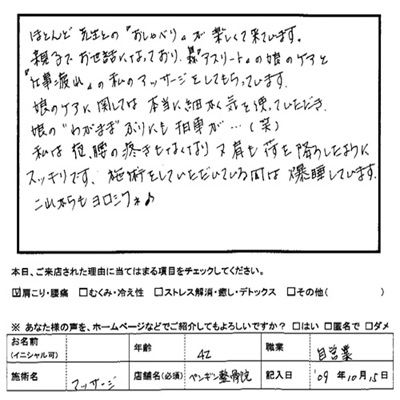 ほとんど先生との『おしゃべり』が楽しくて来ています。
親子でお世話になっており、『アスリート』の娘のケアと
『仕事疲れ』の私のマッサージをしてもらっています。
娘のケアに関しては本当に細かく気を遣っていただき、
娘の"わがまま"ぶりにも拍車が…(笑)
私は 腰の疼きもなくなり 又肩も荷を降ろしたように
スッキリです、施術をしていただいている間は爆睡しています。
これからもヨロシクネ♪
本日、ご来店された理由に当てはまる項目をチェックしてください。
☑肩こり・腰痛 □むくみ・冷え性 □ストレス解消・癒し・デトックス □その他( )
※ あなた様の声を、ホームページなどでご紹介してもよろしいですか? □はい □匿名で □ダメ
お名前(イニシャル可) 年齢 42 職業 自営業
施術名 マッサージ 店舗名(必須) ペンギン整骨院 記入日 '09年10月15日